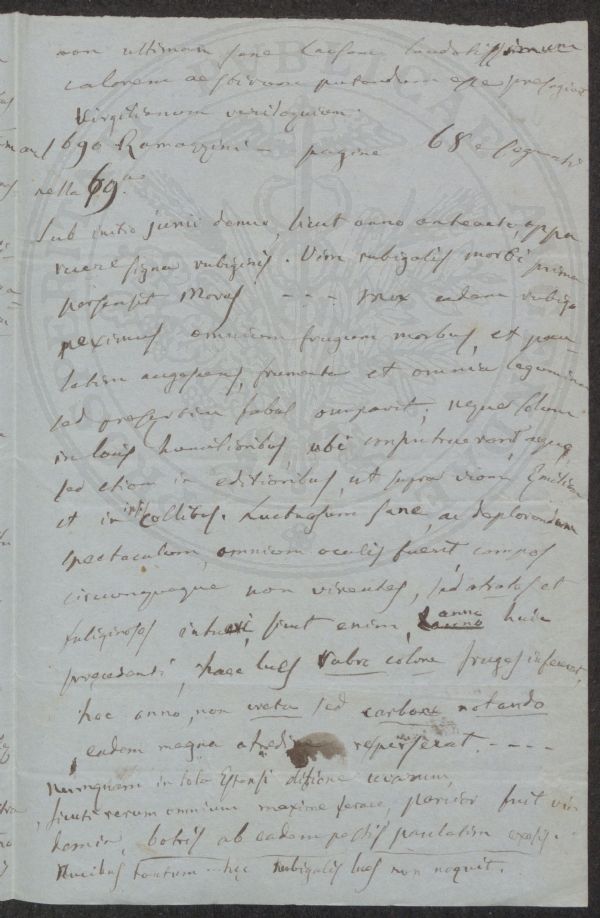 non ultimam sane causam laudatissimum
calorem aestivum putandum esse
Virgilianum vaniloquium.
1690 Ramazzini - pagine 68 e seguenti
nella 69.
Sub initio junii demum, sicut anno anteacto appa
ruere signa rubiginis. Vim rubigalis morbi primae
persensit Moros - - - mox eadem rubigo
pexímus omnium frugum morbus, et pau-
latim augescens, frumenta et omnia legumina
sed presertim fabas occupavit; neque solum
in locis humilioribus, ubi computruerant aquae,
sed etiam in editioribus, ut supra viam Emiliam
et in ipsis collibus. Luctuosum sane, ac deplorandum
spectaculum, omnium oculis fuerit, campos
circumquaque non virentes, sed atratos et
fuliginosos intueri, sicut enim, anno huic
precedenti, haec lues rubro colore fruges infecerat,
hoc anno, non creta sed carbone notando
eadem magna atredine resperserat. - - - -
Numquam in tota Estensi ditione uvarum,
sicuti rerum omnium maxime ferace, parcior fuit vin
demia, botris ab eadem pestis paulatim exesis.
Nucibus tantum hec rubigalis lues non nocuit.